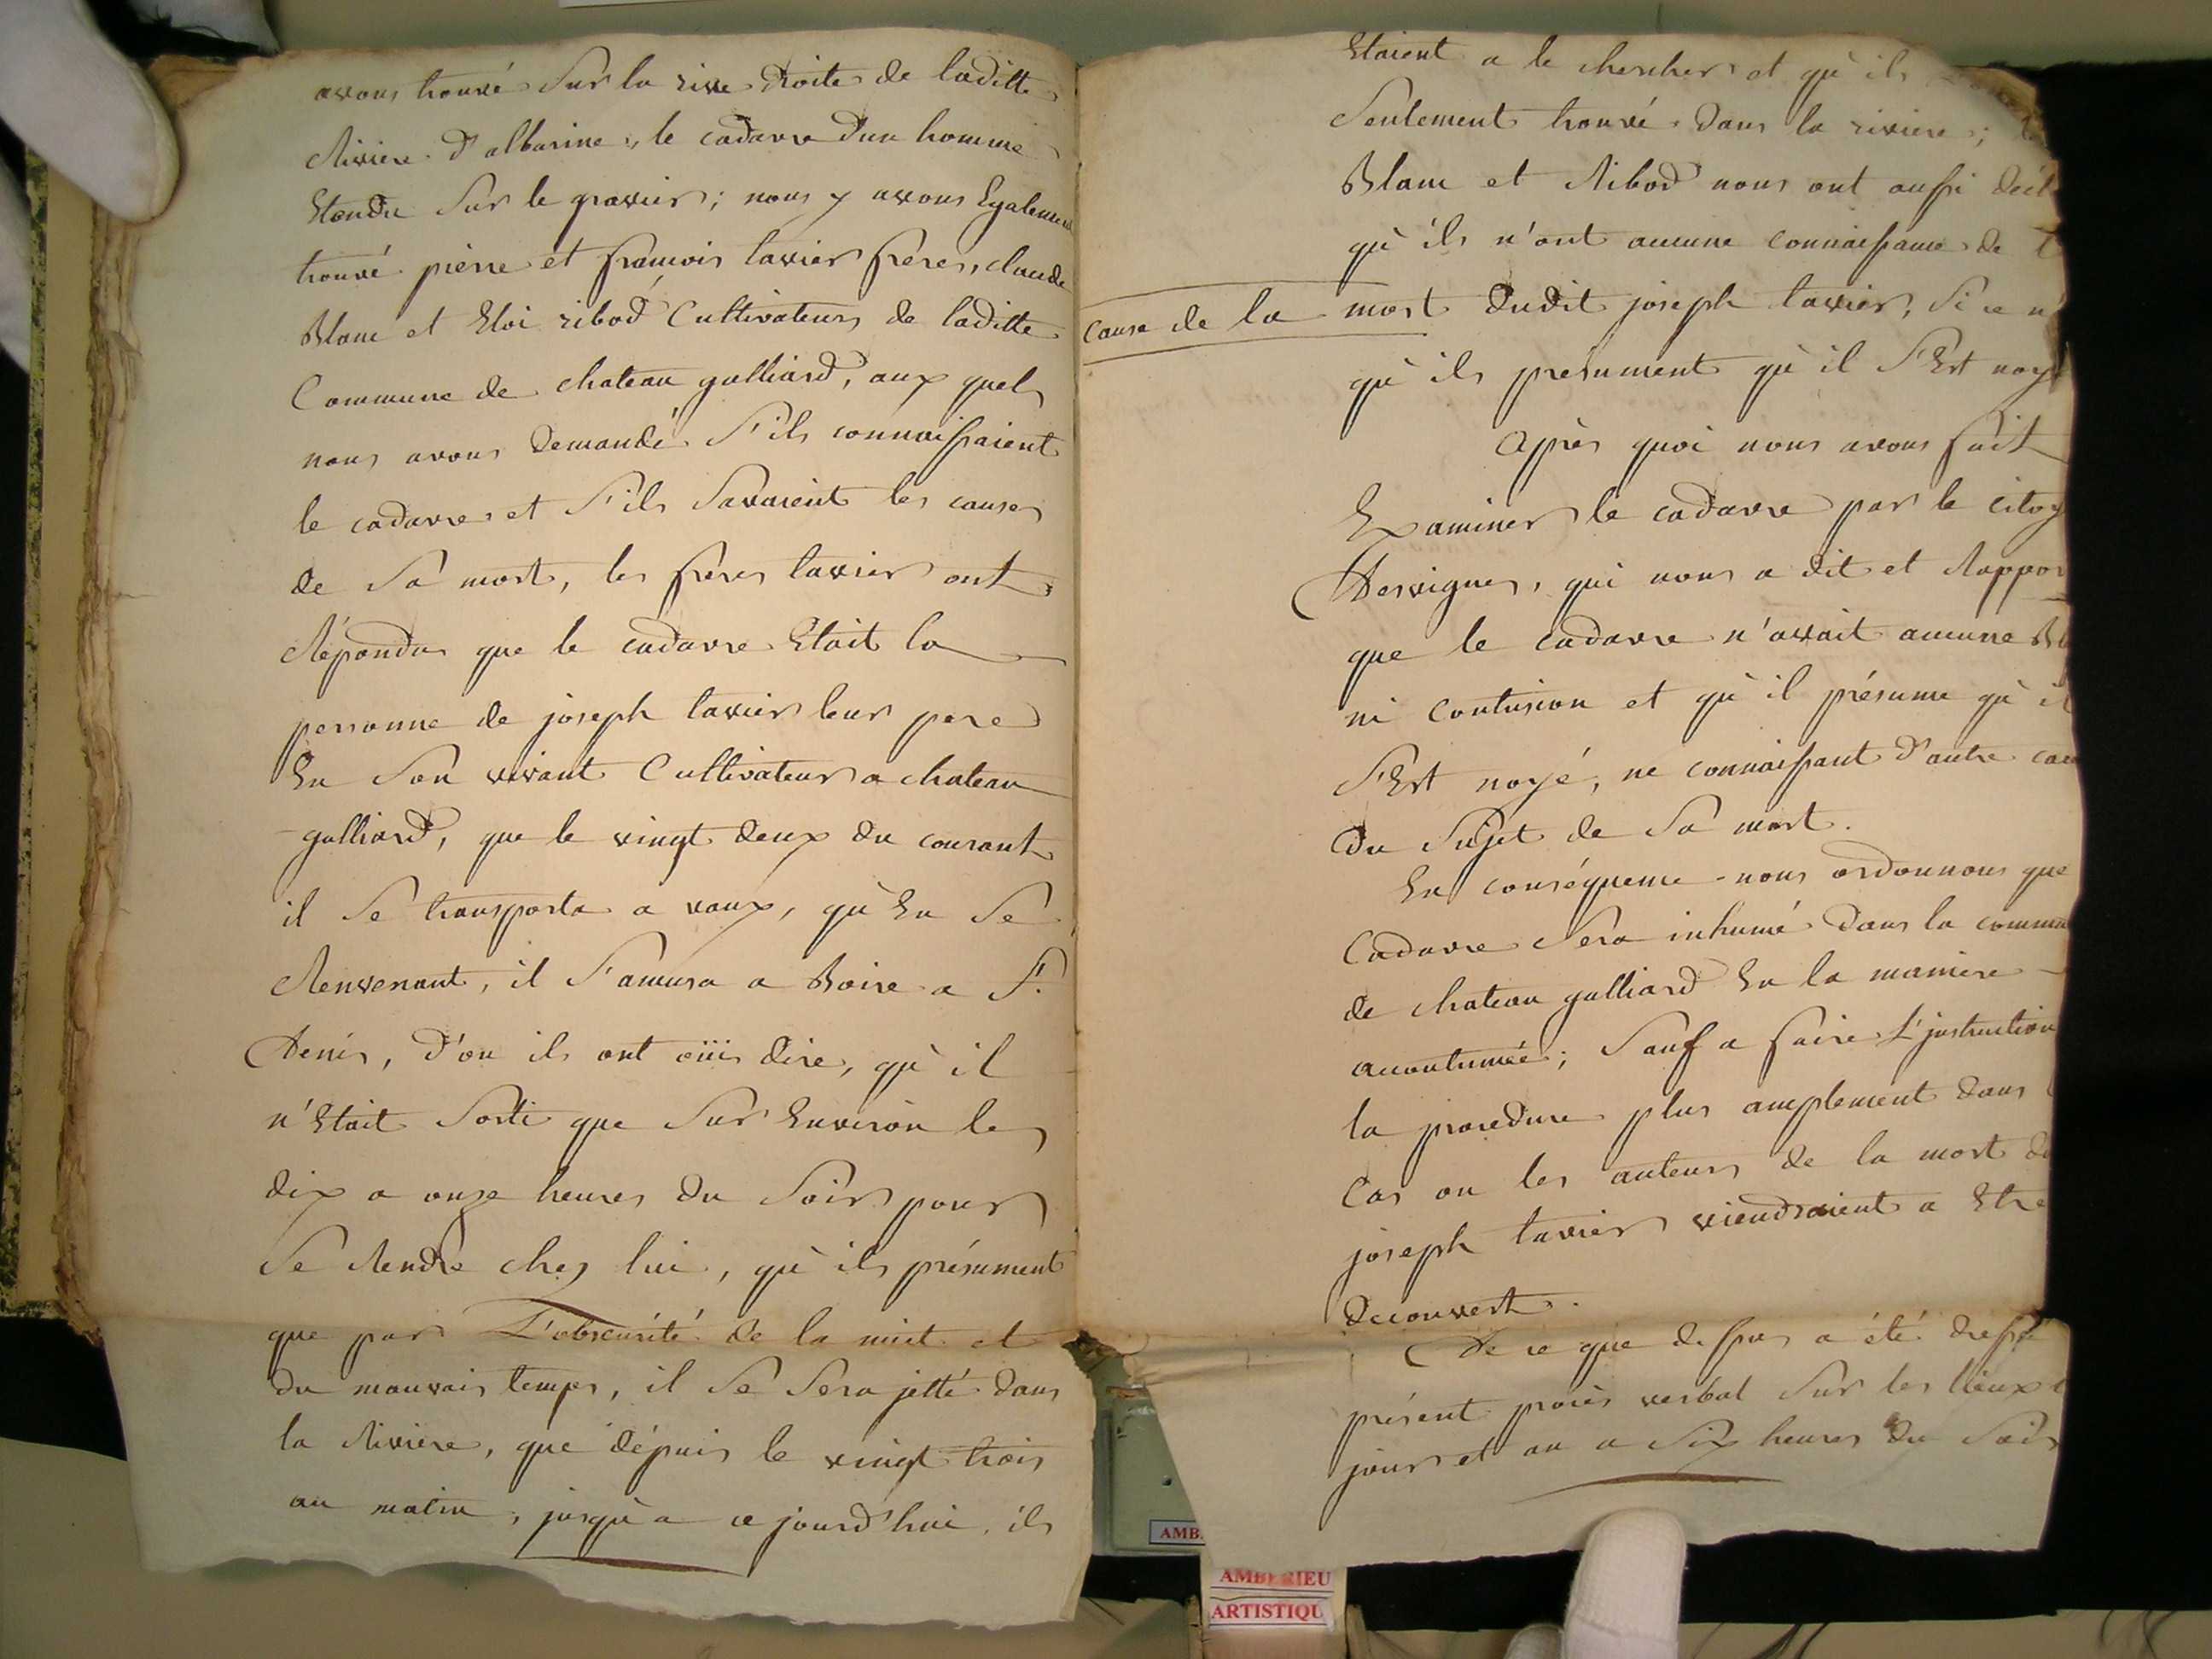 avons trouvé Sur la rive droite de laditte
Riviere d'albarine, le cadavre dun homme
Etendu Sur le gravier; nous y avons Egalement
trouvé pierre et francois tavier freres, claude
Blanc et Eloi ribod Cultivateurs de laditte
Commune de chateau galliard, aux quels
nous avons demandé S'ils connaissaient
le cadavre et S'ils Savaient les causes
de Sa mort, les freres tavier ont
Répondu que le cadavre Etait la
personne de joseph tavier leur pere
En Son vivant Cultivateur a chateau
galliard, que le vingt deux du courant
il Se transporta a vaux, qu'En Se
Renvenant, il S'amusa a Boire a St.
Denis, d'ou ils ont oüi dire, qu'il
n'Etait Sorti que Sur Environ les
dix a onze heures du Soir pour
Se Rendre chez lui, qu'ils présument
que par L'obscurité de la nuit et
du mauvais temps, il Se Sera jetté dans
la Riviere, que dépuis le vingt trois
au matin, jusqu'a ce jourd'hui, ils
Etaient a le chercher et qu'ils
Seulement trouvé dans la riviere;
Blanc et Ribod nous ont aussi décl
qu'ils n'ont aucune connaissance de
cause de la mort dudit joseph tavier, Si ce n'
qu'ils présument qu'il S'Est noyé
Après quoi nous avons fait
Examiner le cadavre par le citoy
Dervigner, qui nous a dit et Rappor
que le cadavre n'avait aucune Bl
ni Contusion et qu'il présume qu'il
S'Est noyé, ne connaissant d'autre cau
du Sujet de Sa mort.
En conséquence nous ordonnons que
Cadavre Sera inhumé dans la commu
de chateau galliard En la maniere
accoutumée; Sauf a faire L'instruction
la procedure plus amplement dans
Cas ou les auteurs de la mort du
joseph tavier viendraient a Etre
decouvert.
De ce que dessus a été dressé
présent procès verbal Sur les lieux
jour et an a Six heures du Soir
AMB
AMBERIEU
ARTISTIQU